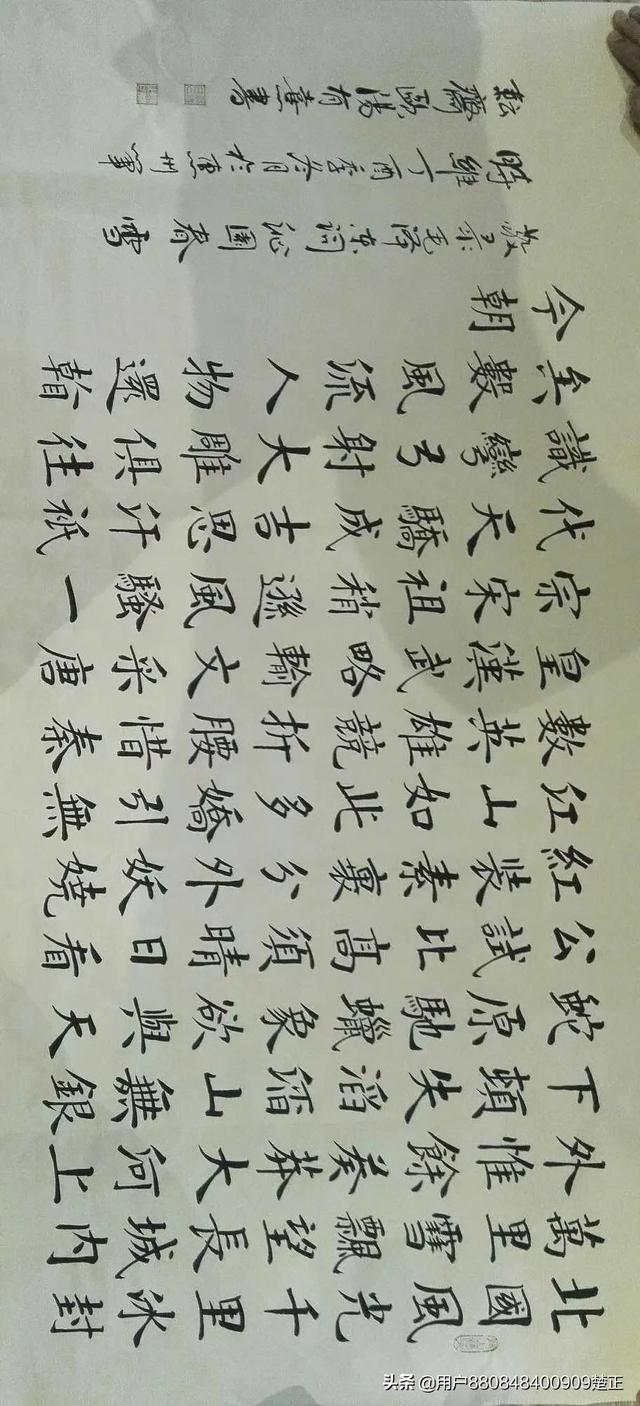 北國風光千里冰封
萬里雪飄望長城内
外惟餘莽莽大河上
下頓失滔滔山舞銀
蛇原馳蠟象欲與天
公試比高須晴日看
紅裝素裹分外妖嬈
江山如此多嬌引無
數英雄競折腰惜秦
皇漢武略輸文采唐
宗宋祖稍遜風騷一
代天驕成吉思汗祇
識彎弓射大雕俱往
矣數風流人物還看
今朝
敬录毛泽东词沁園春雪
時維丁酉季冬月於惠州
耘齋歐陽有章書
头条 @用户880848400909楚正